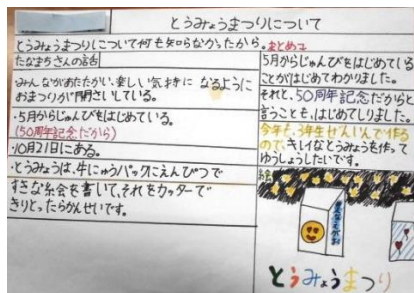 とうみょうまつりについて
とうみょうまつりについて何も知らなかったから。
たなまちさんの話
みんながあたたかい、楽しい気持きに なるように
おまつりが開さいしている。
・5月からじゅんびをはじめている。
(50周年記念だから)
・10月21日にある。
・とうみょうは、牛にゅうパックにえんぴつで
すきな絵を書いて、それをカッターで
きりとったらかんせいです。
まとめて
5月からじゅんびをはじめている
ことがはじめてわかりました。
それと、50周年記念だからと
言うことも、はじめてしりました。
今年も、3年生ぜんいんで作る
ので、キレイなとうみょうを作って
ゆうしょうしたいです。
絵
とうみょうまつり